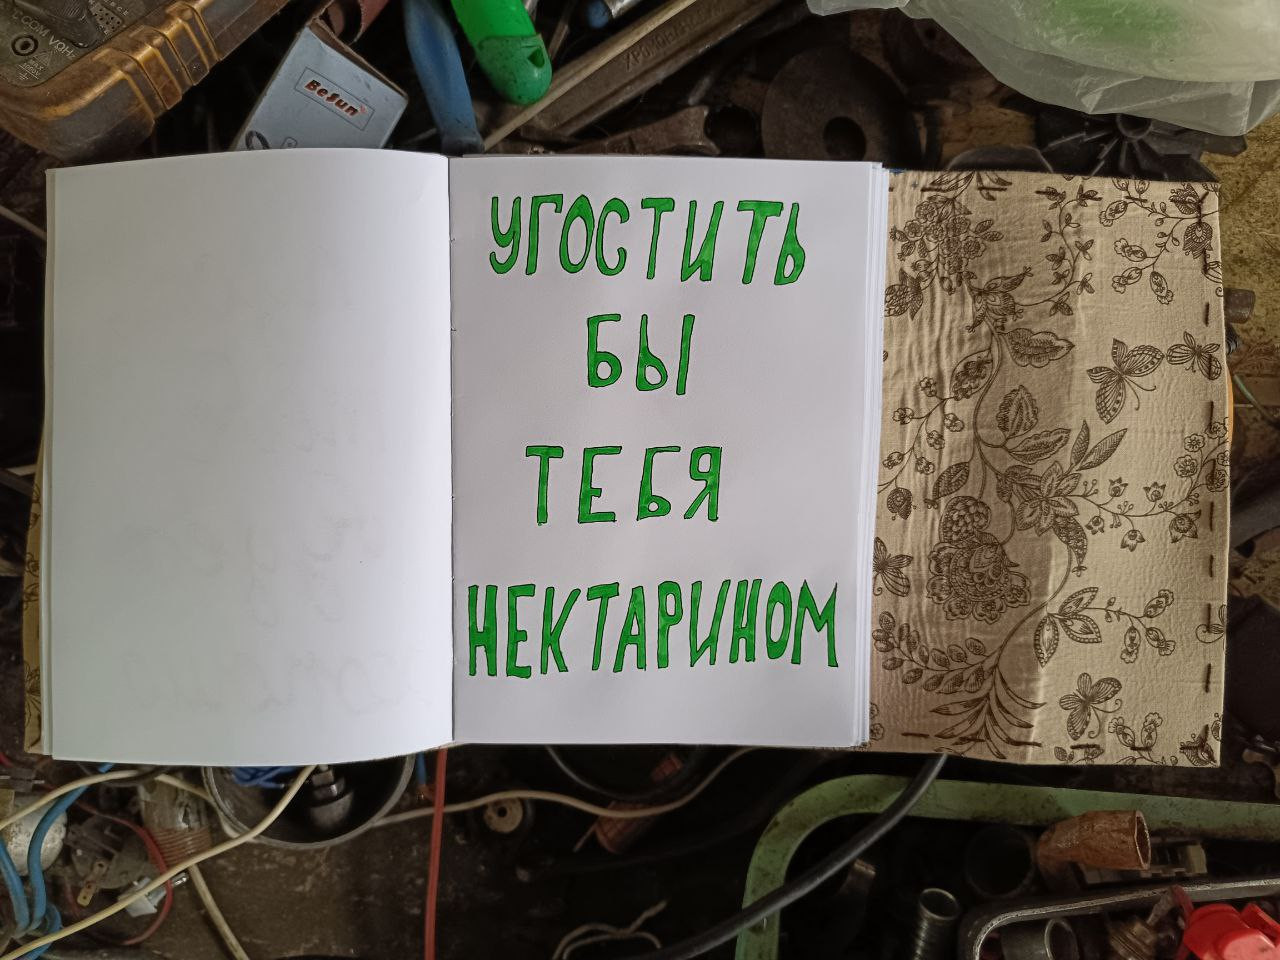 COM VΩHz
BeSun
УГОСТИТЬ
БЫ
ТЕБЯ
НЕКТАРИНОМ